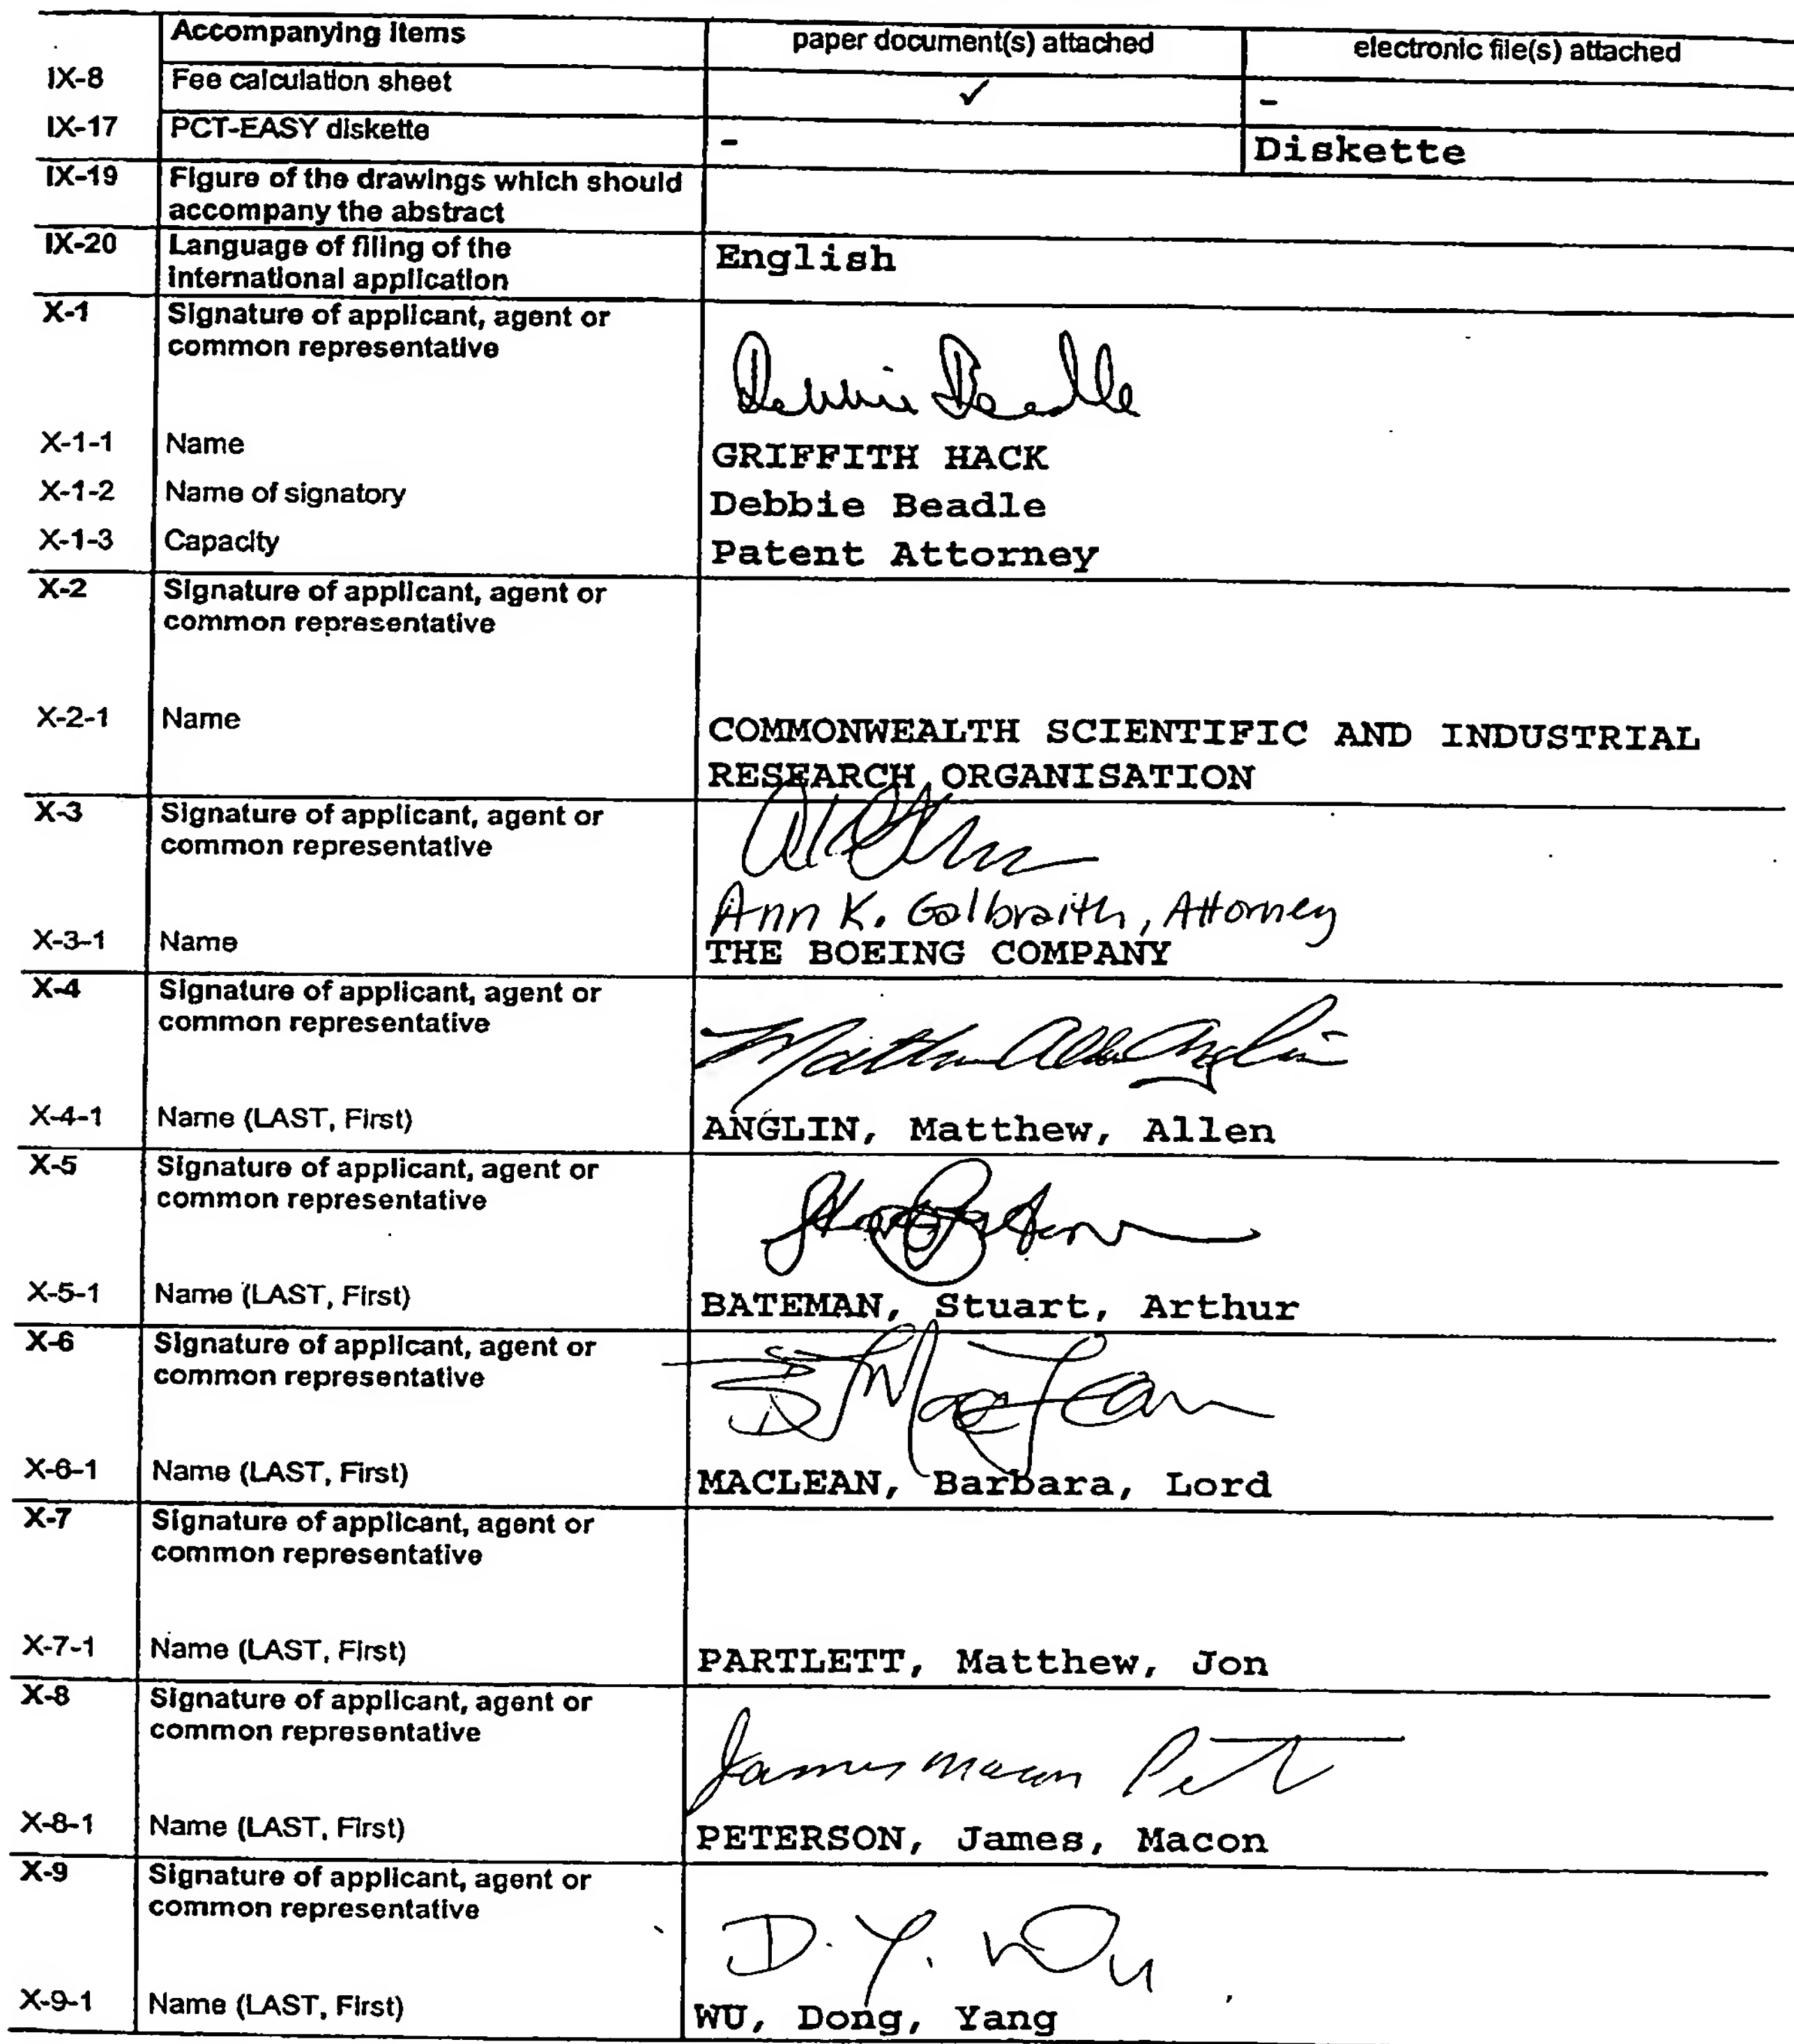 Accompanying Items paper document(s) attached electronic file(s) attached
IX-8 Fee calculation sheet ✓ -
IX-17 PCT-EASY diskette - Diskette
IX-19 Figure of the drawings which should
accompany the abstract
IX-20 Language of filing of the
international application English
X-1 Signature of applicant, agent or
common representative
Debbie Beadle
X-1-1 Name GRIFFITH HACK
X-1-2 Name of signatory Debbie Beadle
X-1-3 Capacity Patent Attorney
X-2 Signature of applicant, agent or
common representative
X-2-1 Name COMMONWEALTH SCIENTIFIC AND INDUSTRIAL
RESEARCH ORGANISATION
X-3 Signature of applicant, agent or
common representative
Ann K. Galbraith, Attorney
X-3-1 Name THE BOEING COMPANY
X-4 Signature of applicant, agent or
common representative
Matthew Allen Anglin
X-4-1 Name (LAST, First) ANGLIN, Matthew, Allen
X-5 Signature of applicant, agent or
common representative
X-5-1 Name (LAST, First) BATEMAN, Stuart, Arthur
X-6 Signature of applicant, agent or
common representative
B L MacLean
X-6-1 Name (LAST, First) MACLEAN, Barbara, Lord
X-7 Signature of applicant, agent or
common representative
X-7-1 Name (LAST, First) PARTLETT, Matthew, Jon
X-8 Signature of applicant, agent or
common representative
James Macon
X-8-1 Name (LAST, First) PETERSON, James, Macon
X-9 Signature of applicant, agent or
common representative
D. Y. Wu
X-9-1 Name (LAST, First) WU, Dong, Yang